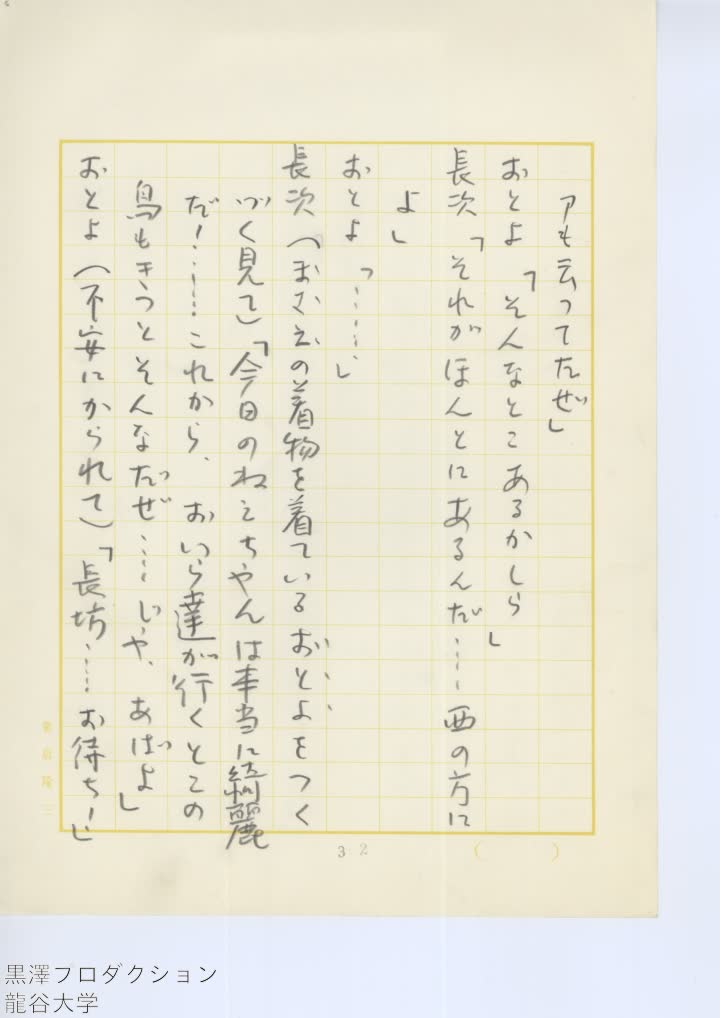 アも云ってたぜ」
おとよ「そんなとこあるかしら」
長次「それがほんとにあるんだ……西の方に
よ」
おとよ「……」
長次（まさえの着物を着ているおとよをつく
づく見て）「今日のねえちゃんは本当に綺麗
だ！……これから、おいら達が行くとこの
鳥もきっとそんなだぜ……じゃ、あばよ」
おとよ（不安にかられて）「長坊……お待ち！」
32
( )
黒澤プロダクション
龍谷大学